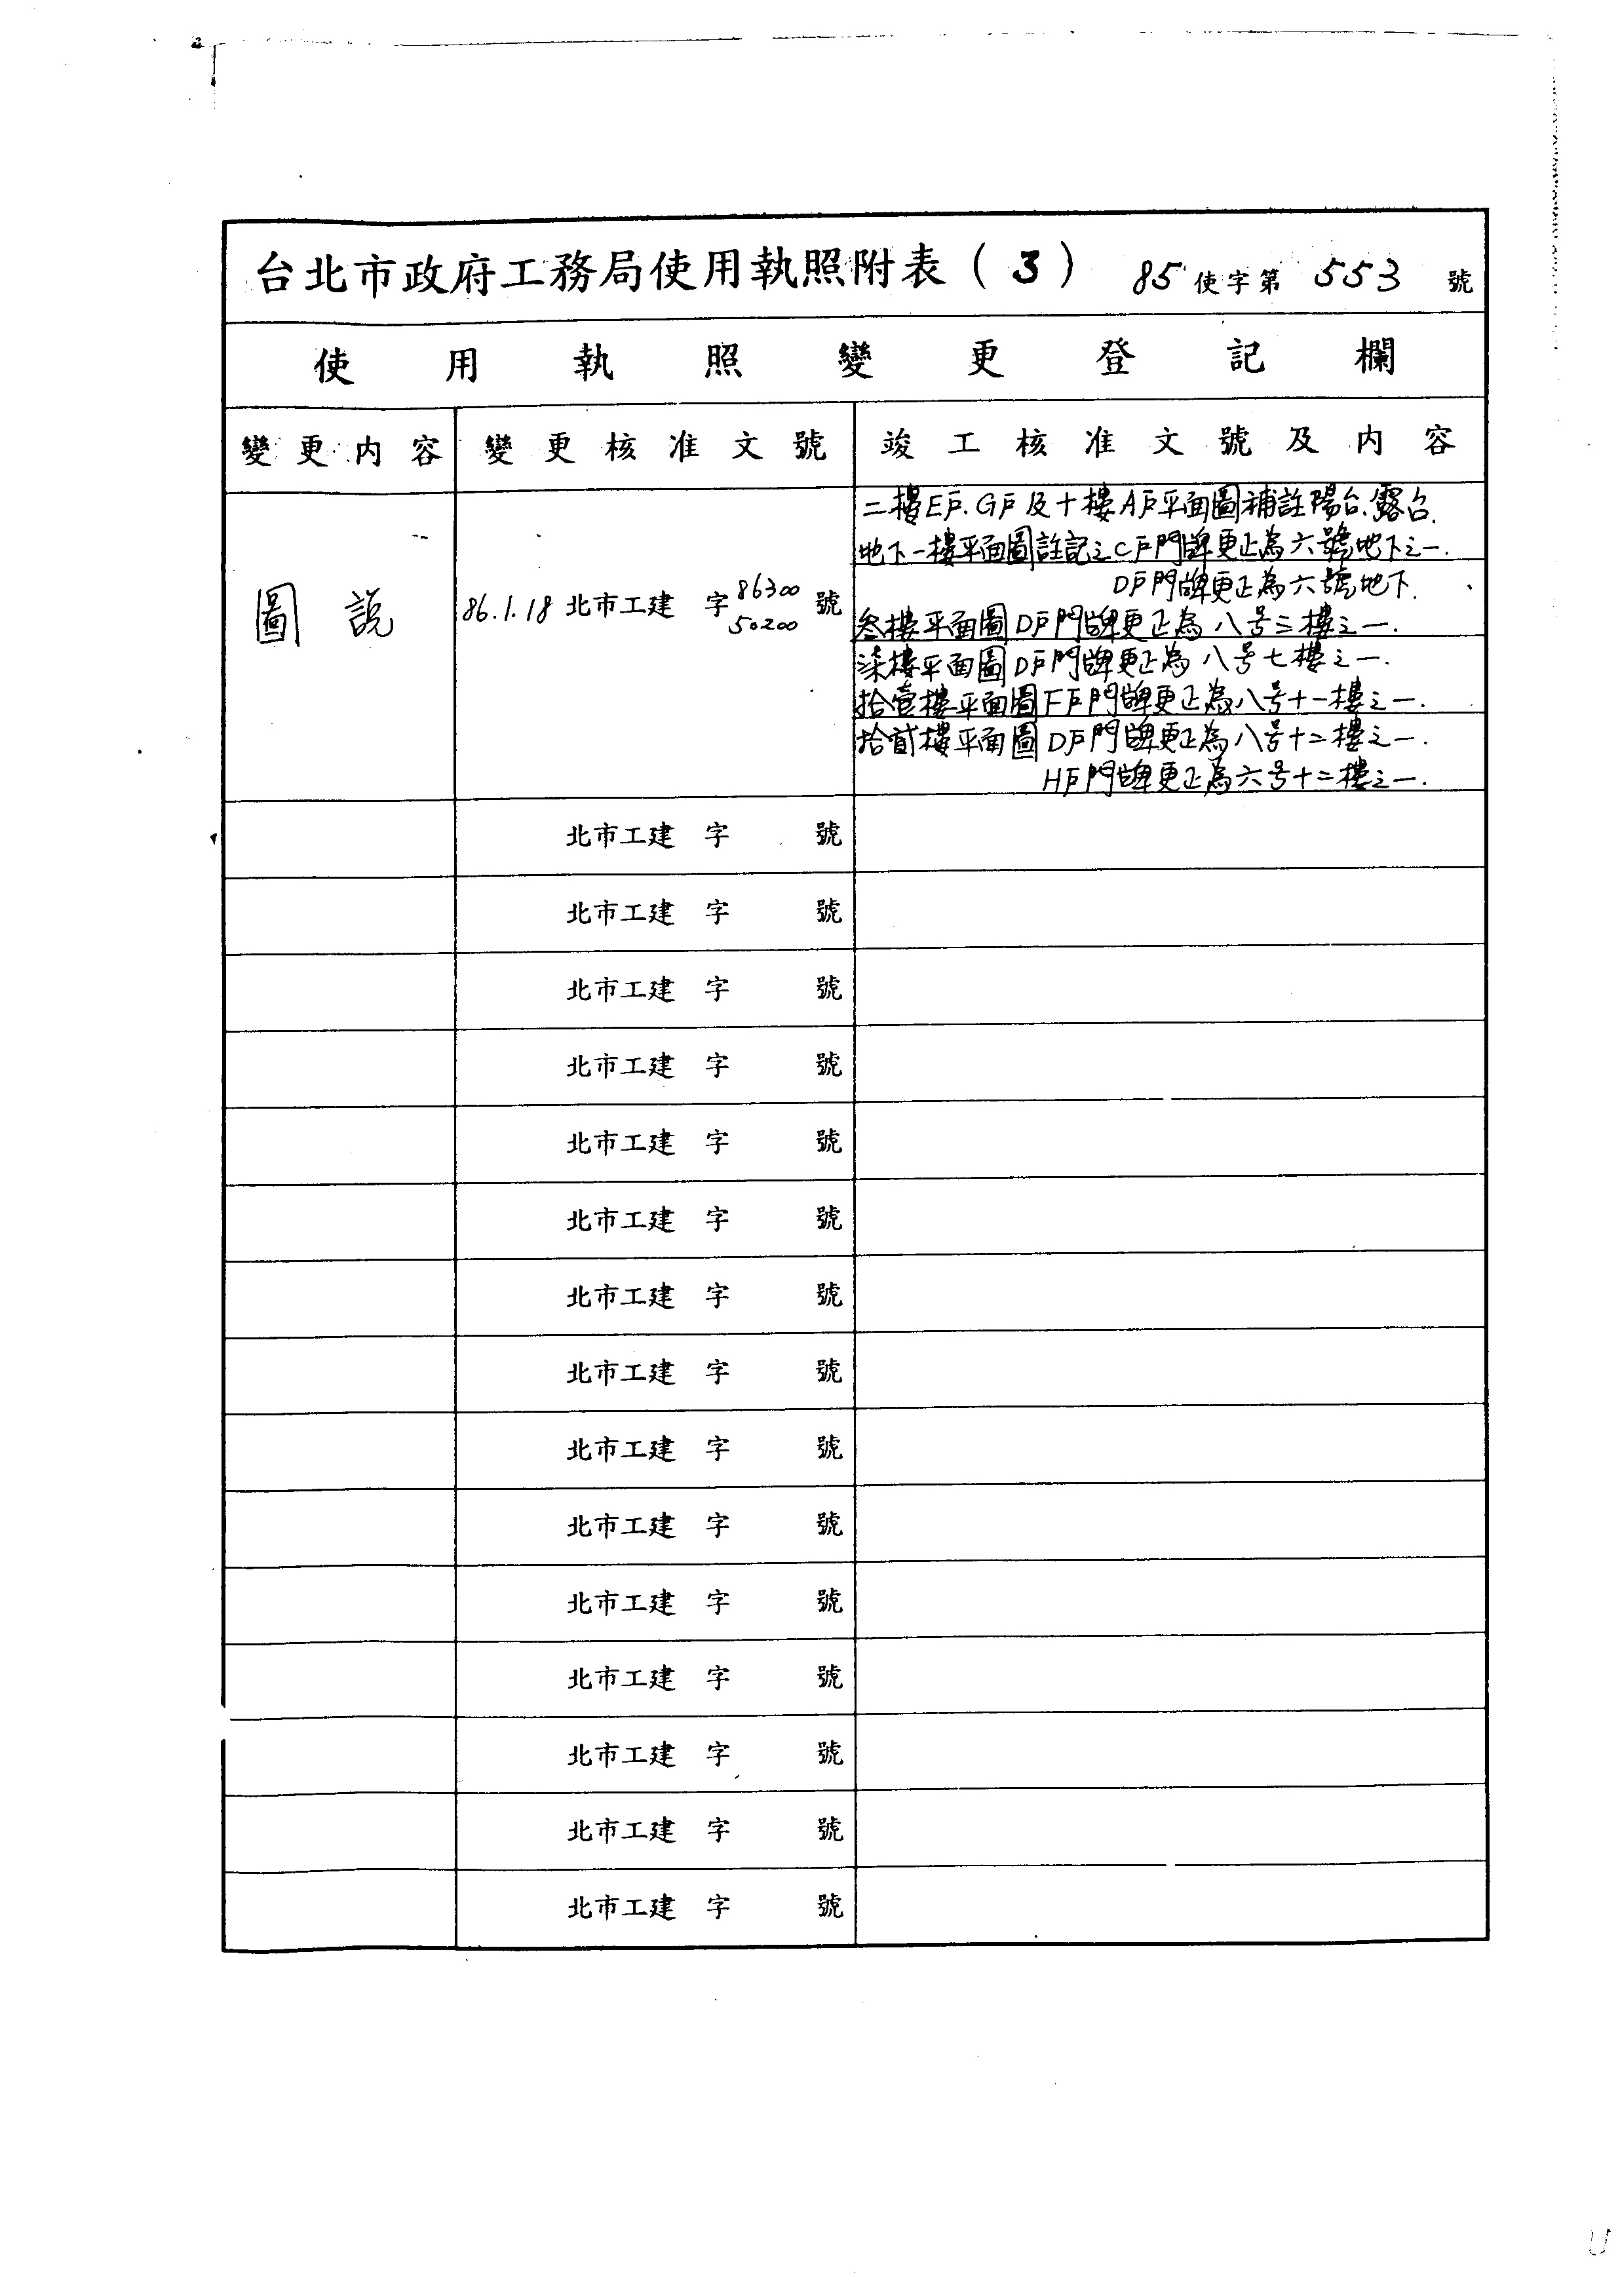 台北市政府工務局使用執照附表(3) 85使字第 553 號
使用執照變更登記欄
變更內容 變更核准文號 竣工核准文號及內容
圖說
86.1.18 北市工建 字 8630050200 號
二樓E戶.G戶及十樓A戶平面圖補註陽台.露台.
地下一樓平面圖註記之C戶門牌更正為六號地下之一.
D戶門牌更正為六號地下.
叁樓平面圖D戶門牌更正為八号三樓之一.
柒樓平面圖D戶門牌更正為八号七樓之一.
拾壹樓平面圖F戶門牌更正為八号十一樓之一.
拾貳樓平面圖D戶門牌更正為八号十二樓之一.
H戶門牌更正為六号十二樓之一.
北市工建 字 號
北市工建 字 號
北市工建 字 號
北市工建 字 號
北市工建 字 號
北市工建 字 號
北市工建 字 號
北市工建 字 號
北市工建 字 號
北市工建 字 號
北市工建 字 號
北市工建 字 號
北市工建 字 號
北市工建 字 號
北市工建 字 號